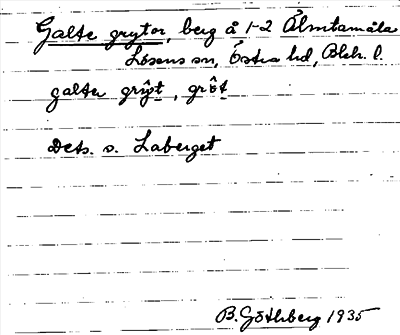 Galte grytor, berg å 1-2 Älmtamåla
Lösens sn, Östra hd, Blek. l.
galta grŷt, grôt
Dets. s. Laberget
B. Göthberg 1935